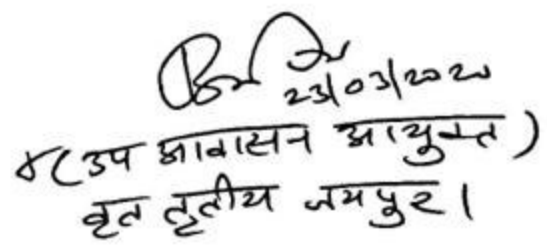 23/03/2020
(उप आवासन आयुक्त)
वृत तृतीय जयपुर।